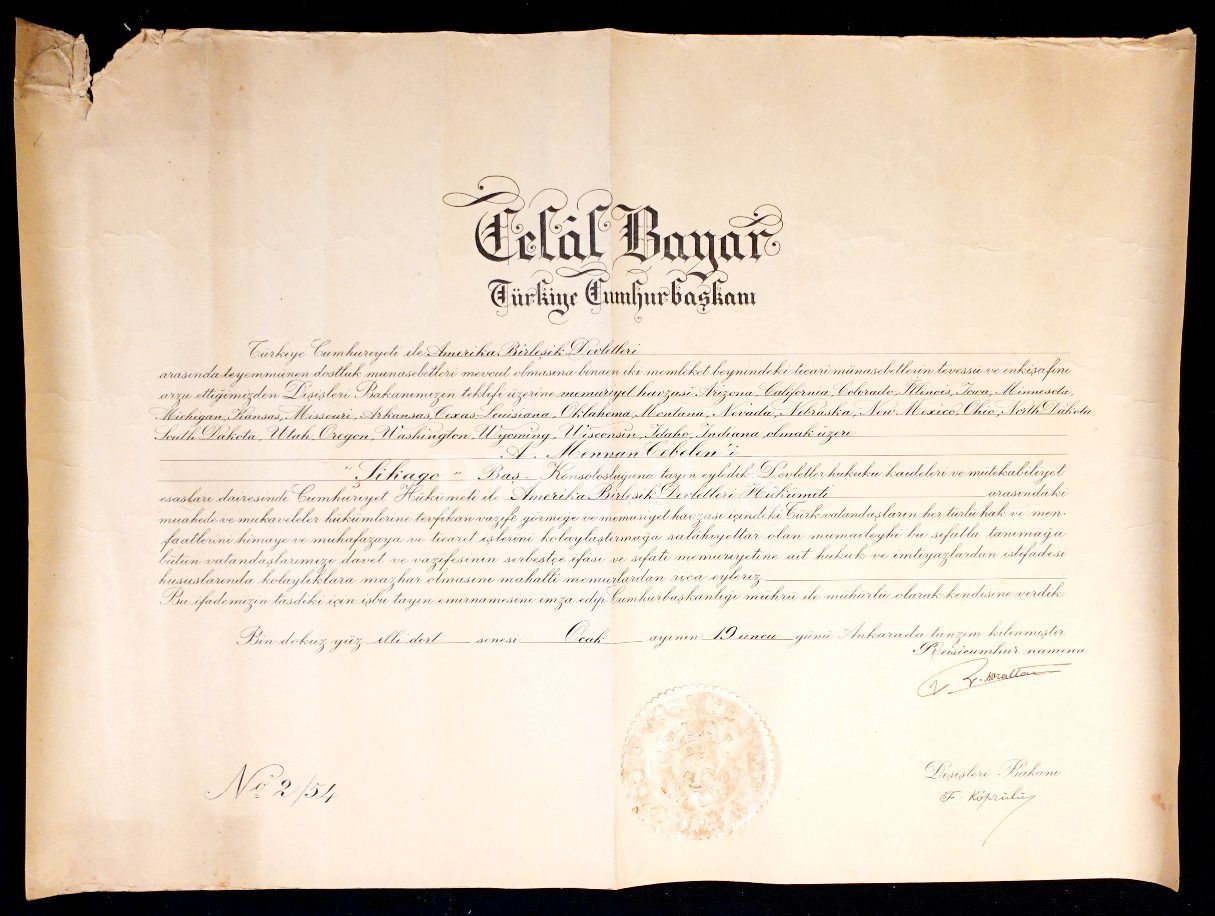 Celâl Bayar
Türkiye Cumhurbaşkanı
Türkiye Cumhuriyeti ile Amerika Birleşik Devletleri
arasında teyemmünen dostluk münasebetleri mevcut olmasına binaen iki memleket beynindeki ticari münasebetlerin tevessü ve inkişafını
arzu ettiğimizden Dışişleri Bakanımızın teklifi üzerine memuriyet havzası Arizona, California, Colorado, Illinois, Iowa, Minnesota,
Michigan, Kansas, Missouri, Arkansas, Texas, Louisiana, Oklahoma, Montana, Nevada, Nebraska, New Mexico, Ohio, North Dakota
South Dakota, Utah, Oregon, Washington, Wyoming, Wisconsin, Idaho, Indiana olmak üzere
A. Mennan Tebelen'i
"Şikago" Baş- Konsolosluğuna tayin eyledik. Devletler hukuku kaideleri ve mütekabiliyet
esasları dairesinde Cumhuriyet Hükümeti ile Amerika Birleşik Devletleri Hükümeti arasındaki
muahede ve mukaveleler hükümlerine tevfikan vazife görmeğe ve memuriyet havzası içindeki Türk vatandaşların her türlü hak ve men-
faatlerini himaye ve muhafazaya ve ticaret işlerini kolaylaştırmağa salahiyettar olan mumaileyhi bu sıfatla tanımağa
bütün vatandaşlarımızı davet ve vazifesinin serbestçe ifası ve sıfatı memuriyetine ait hukuk ve imtiyazlardan istifadesi
hususlarında kolaylıklara mazhar olmasını mahalli memurlardan rica eyleriz
Bu ifademizin tasdiki için işbu tayin emirnamesini imza edip Cumhurbaşkanlığı mührü ile mühürlü olarak kendisine verdik.
Bin dokuz yüz elli dört senesi Ocak ayının 19 uncu günü Ankarada tanzim kılınmıştır
Reisicumhur namına
Dışişleri Bakanı
F. Köprülü
No 2/54